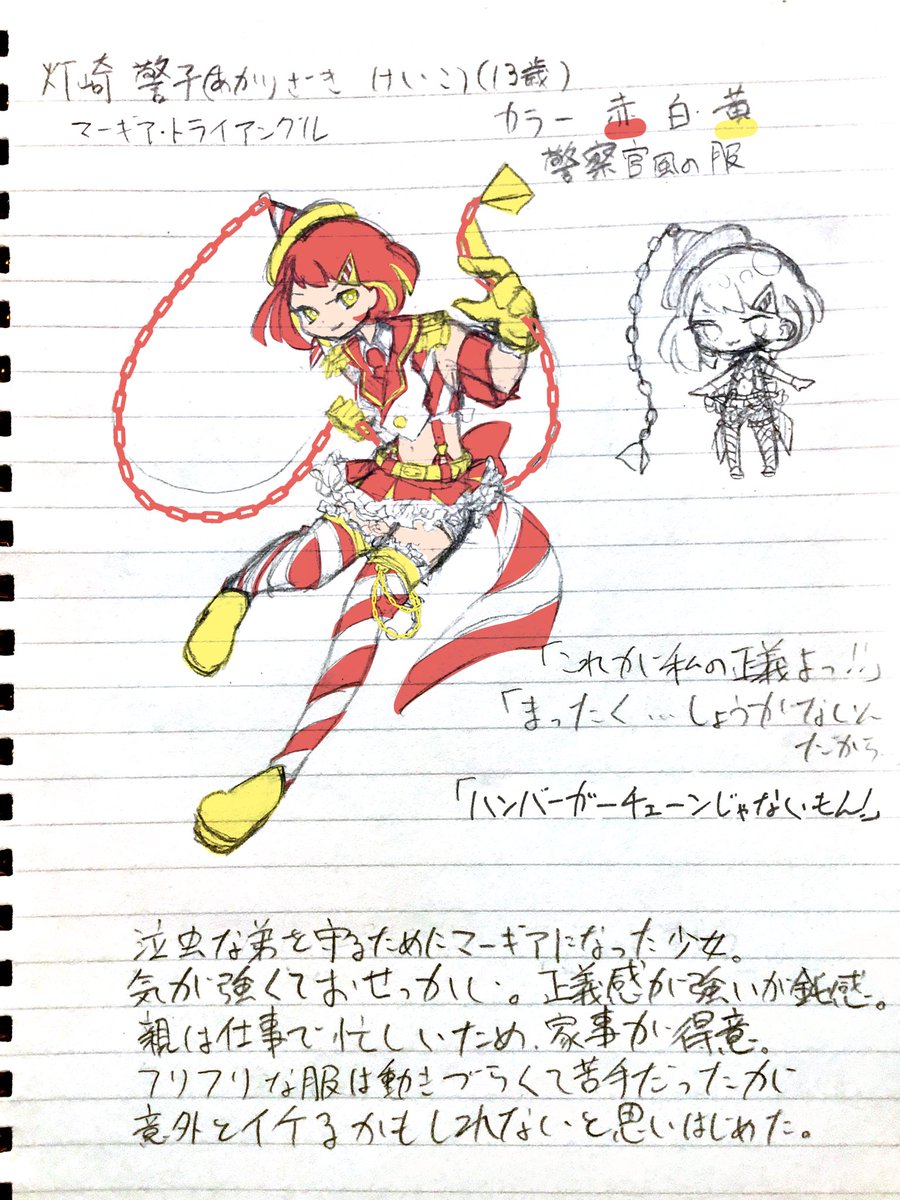 灯崎 警子(あかりさーき けいこ)(13歳)
マーギア・トライアングル
カラー 赤 白・黄
警察官風の服
「これが私の正義よっ!!」
「まったく…しょうがないん
だから
「ハンバーガーチェーンじゃないもん!」
泣虫な弟を守るためにマーギアになった少女。
気が強くておせっかい。正義感が強いが鈍感。
親は仕事で忙しいため、家事が得意。
フリフリな服は動きづらくて苦手だったが
意外とイケるかもしれないと思いはじめた。